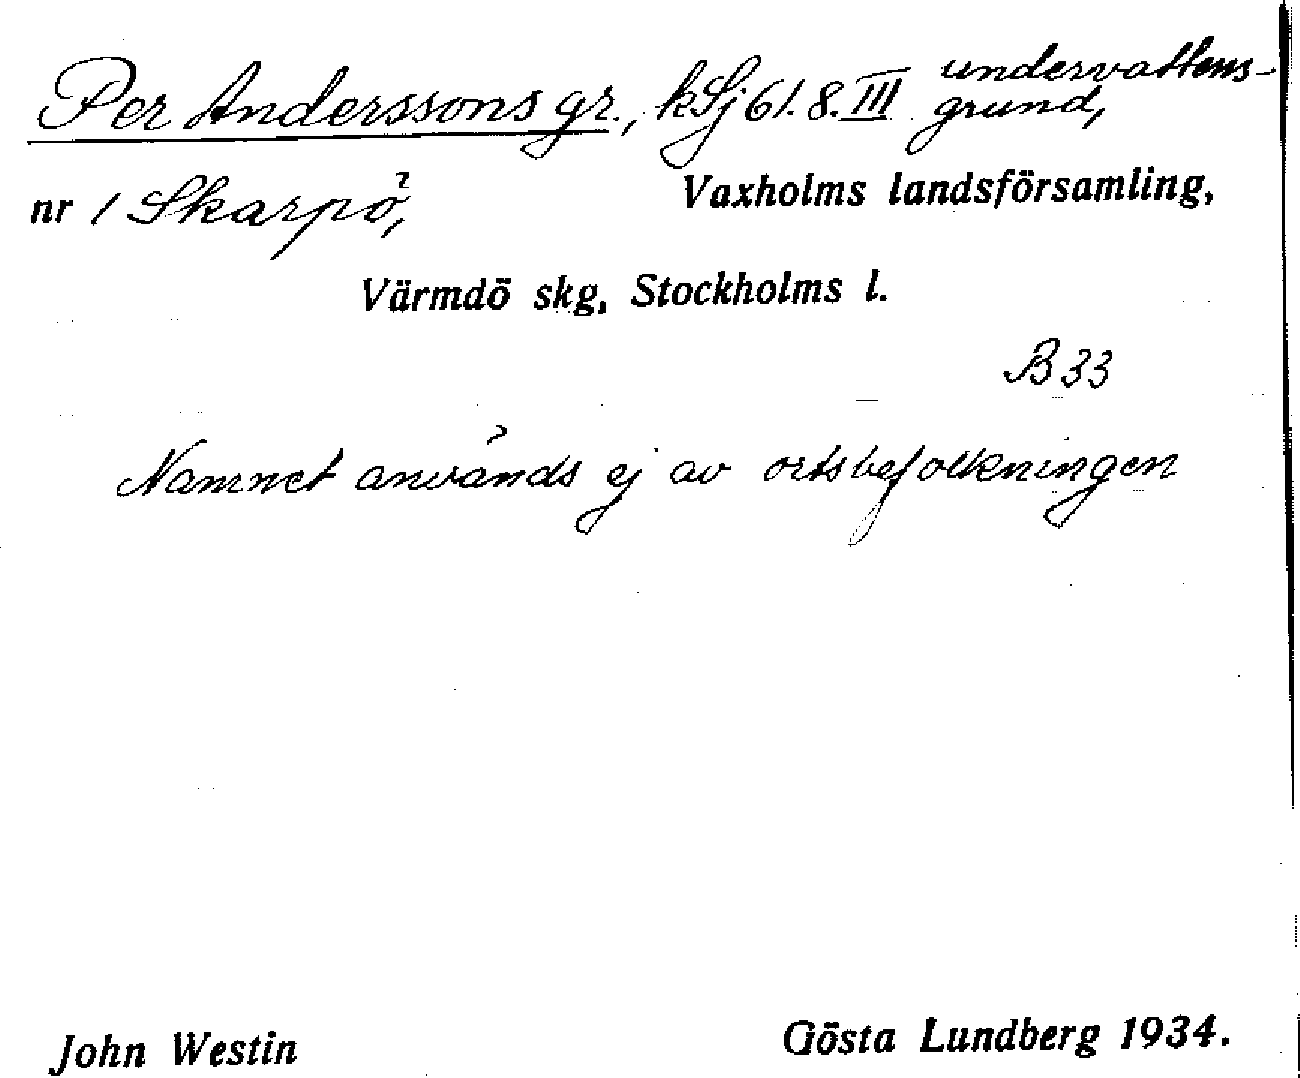 Per Anderssons gr., kSj 61.8.III undervattens-
grund,
nr 1 Skarpö, Vaxholms landsförsamling,
Värmdö skg, Stockholms l.
B 33
Namnet används ej av ortsbefolkningen
John Westin Gösta Lundberg 1934.